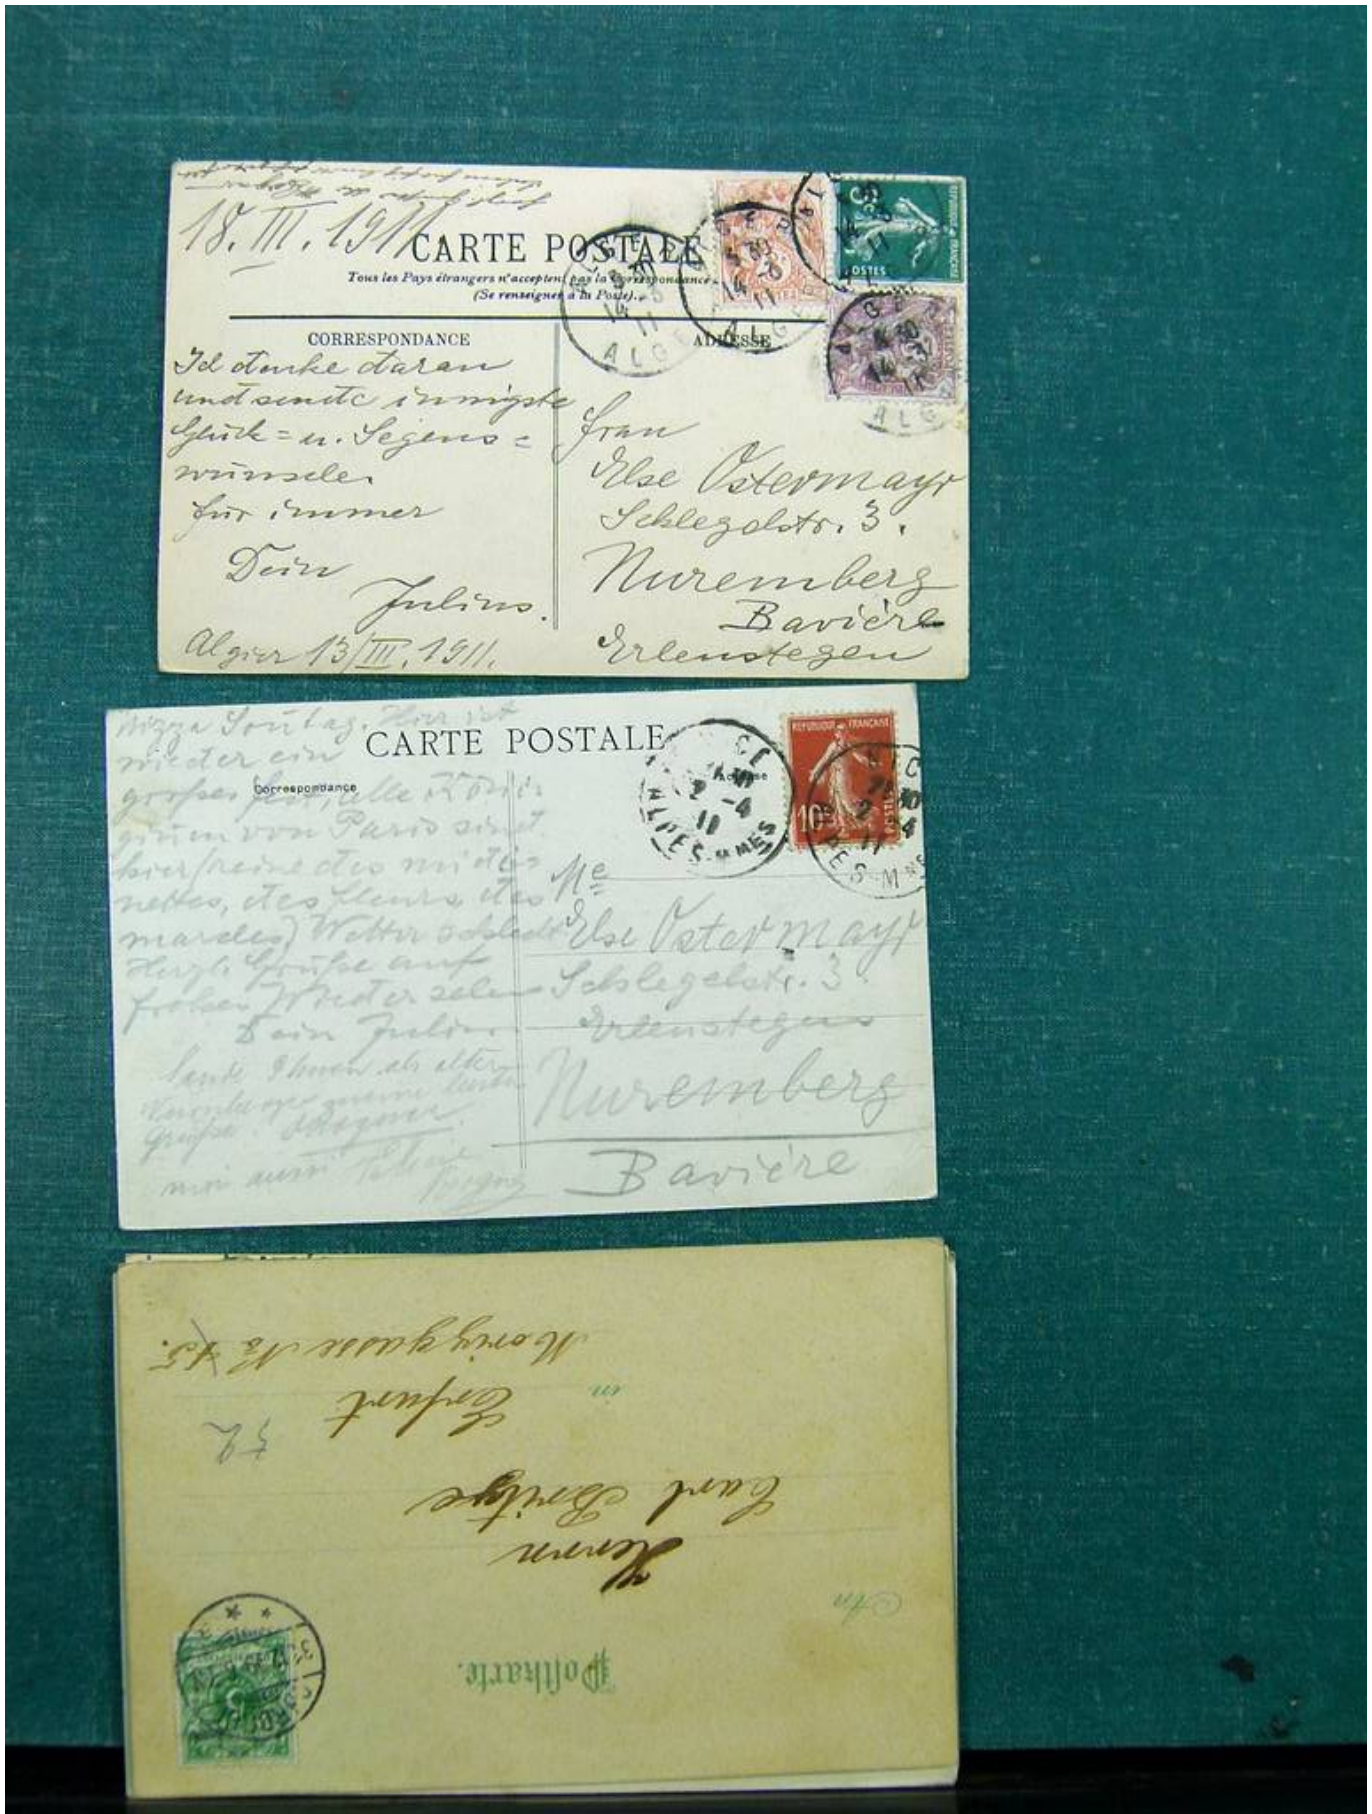 18. III. 1911
CARTE POSTALE
Tous les Pays étrangers n'acceptent pas la Correspondance.
(Se renseigner à la Poste).
CORRESPONDANCE
Ich denke daran
und sende innigste
Glück= u. Segens=
wünsche.
für immer
Dein
Julius.
Algier 13/III. 1911.
ADRESSE
Frau
Else Ostermayr
Schlegelstr. 3.
Nuremberg
Bavière
Erlenstegen
ALGER
5 30
14 -3
11
ALGER
POSTES
Nizza Sontag. Hier ist
wieder ein
großes Fest, alle Köni-
ginnen von Paris sind
hier (reine des midi-
nettes, des fleurs, des
marches) Wetter schlecht
Herzl. Grüße auf
frohes Wiedersehen
Dein Julius.
Sende Ihnen als alter
Nürnberger meine besten
Grüße.
moi aussi
CARTE POSTALE
Correspondance
Adresse
NICE
2 -4
11
ALPES-MMES
REPUBLIQUE FRANÇAISE
10
POSTES
Me
Else Ostermayr
Schlegelstr. 3.
Erlenstegen
Nuremberg
Bavière
Postkarte.
An
Herrn
Carl
in
Erfurt
52
5